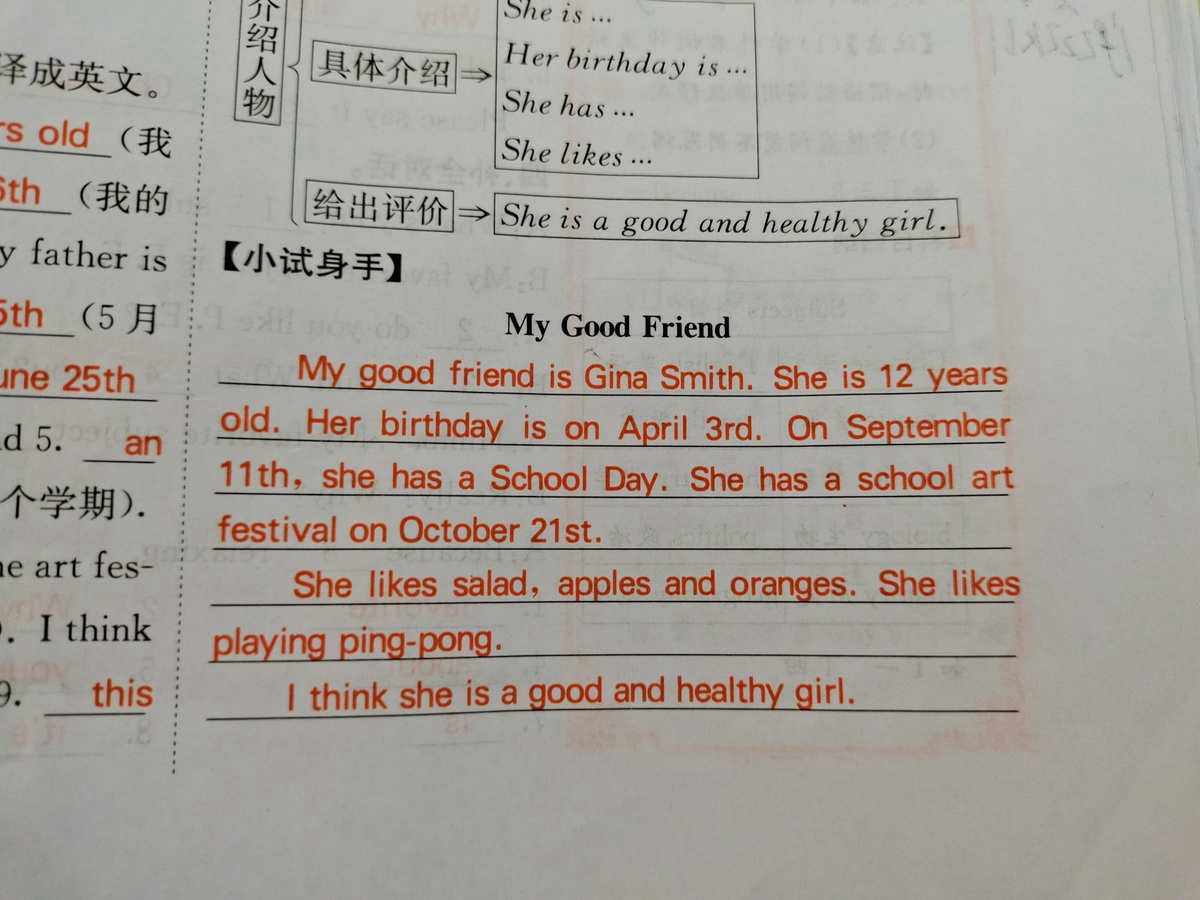 译成英文。
rs old (我
6th (我的
y father is
5th (5 月
une 25th
d 5. an
个学期).
ne art fes-
. I think
9. this
介绍人物
具体介绍 ⇒
She is …
Her birthday is …
She has …
She likes …
给出评价 ⇒ She is a good and healthy girl.
【小试身手】
My Good Friend
My good friend is Gina Smith. She is 12 years
old. Her birthday is on April 3rd. On September
11th, she has a School Day. She has a school art
festival on October 21st.
She likes salad, apples and oranges. She likes
playing ping-pong.
I think she is a good and healthy girl.